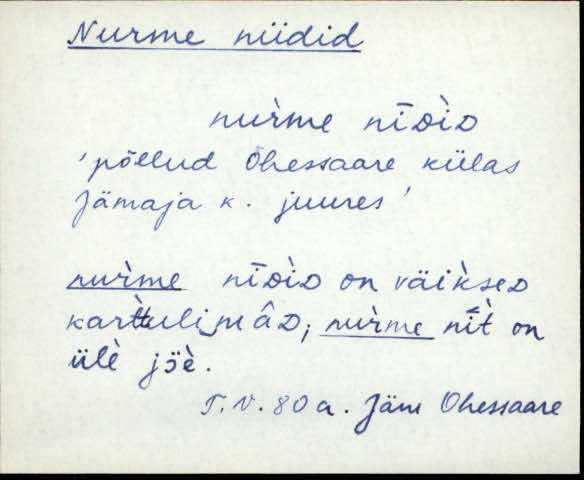 Nurme niidid
nur̀me nīᴅìᴅ
'põllud Ohessaare külas
Jämaja k. juures'
nur̀me nīᴅìᴅ on väik̀seᴅ
kar̀ttulimâᴅ; nur̀me nī̀t on
ülè jȫè.
T.V. 80 a. Jäm Ohessaare